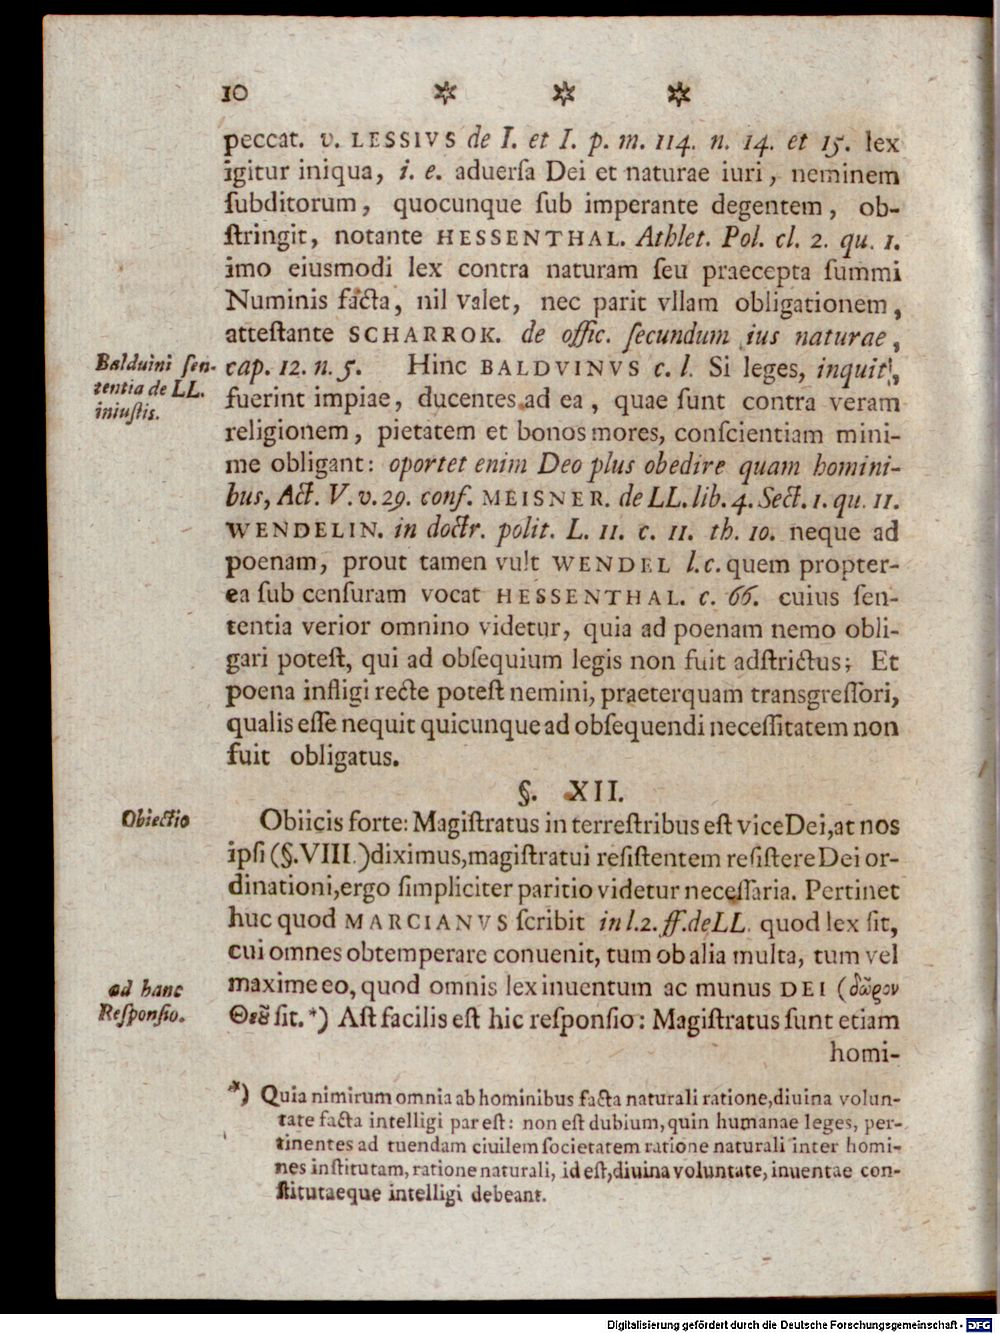 10 * * *
peccat. v. LESSIVS de I. et I. p. m. 114. n. 14. et 15. lex
igitur iniqua, i. e. aduerſa Dei et naturae iuri, neminem
ſubditorum, quocunque ſub imperante degentem, ob-
ſtringit, notante HESSENTHAL. Athlet. Pol. cl. 2. qu. 1.
imo eiusmodi lex contra naturam ſeu praecepta ſummi
Numinis facta, nil valet, nec parit vllam obligationem,
atteſtante SCHARROK. de offic. ſecundum ius naturae,
Balduini ſen-
tentia de LL.
iniuſtis.
cap. 12. n. 5. Hinc BALDVINVS c. l. Si leges, inquit,
fuerint impiae, ducentes ad ea, quae ſunt contra veram
religionem, pietatem et bonos mores, conſcientiam mini-
me obligant: oportet enim Deo plus obedire quam homini-
bus, Act. V. v. 29. conf. MEISNER. de LL. lib. 4. Sect. 1. qu. 11.
WENDELIN. in doctr. polit. L. 11. c. 11. th. 10. neque ad
poenam, prout tamen vult WENDEL l. c. quem propter-
ea ſub cenſuram vocat HESSENTHAL. c. 66. cuius ſen-
tentia verior omnino videtur, quia ad poenam nemo obli-
gari poteſt, qui ad obſequium legis non fuit adſtrictus; Et
poena infligi recte poteſt nemini, praeterquam transgreſſori,
qualis eſſe nequit quicunque ad obſequendi neceſſitatem non
fuit obligatus.
§. XII.
Obiectio
Obiicis forte: Magiſtratus in terreſtribus eſt vice Dei, at nos
ipſi (§. VIII.) diximus, magiſtratui reſiſtentem reſiſtere Dei or-
dinationi, ergo ſimpliciter paritio videtur neceſſaria. Pertinet
huc quod MARCIANVS ſcribit in l. 2. ff. de LL. quod lex ſit,
cui omnes obtemperare conuenit, tum ob alia multa, tum vel
ad hanc
Reſponſio.
maxime eo, quod omnis lex inuentum ac munus DEI (δῶρον
Θεȣ͂ ſit. *) Aſt facilis eſt hic reſponſio: Magiſtratus ſunt etiam
homi-
*) Quia nimirum omnia ab hominibus facta naturali ratione, diuina volun-
tate facta intelligi par eſt: non eſt dubium, quin humanae leges, per-
tinentes ad tuendam ciuilem ſocietatem ratione naturali inter homi-
nes inſtitutam, ratione naturali, id eſt, diuina voluntate, inuentae con-
ſtitutaeque intelligi debeant.
Digitalisierung gefördert durch die Deutsche Forschungsgemeinschaft - DFG